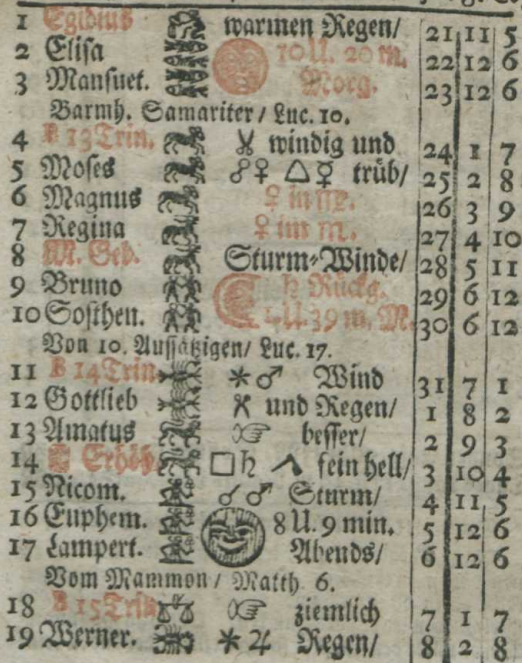 1 Egidius warmen Regen/ 21 11 5
2 Elisa 10 U. 20 m. 22 12 6
3 Mansuet. Morg. 23 12 6
Barmh. Samariter / Luc. 10.
4 B 13 Trin. windig und 24 1 7
5 Moses ☍ ♀ △ ☿ trüb/ 25 2 8
6 Magnus ♀ in 26 3 9
7 Regina ♀ im 27 4 10
8 M. Geb. Sturm-Winde/ 28 5 11
9 Bruno ♄ Rückg. 29 6 12
10 Sosthen. U. 39 m. M. 30 6 12
Von 10. Aussätzigen/ Luc. 17.
11 B 14 Trin. ⚹ ♂ Wind 31 7 1
12 Gottlieb und Regen/ 1 8 2
13 Amatus besser/ 2 9 3
14 Erhöh. □ ♄ fein hell/ 3 10 4
15 Nicom. ☌ ♂ Sturm/ 4 11 5
16 Euphem. 8 U. 9 min. 5 12 6
17 Lampert. Abends/ 6 12 6
Vom Mammon / Matth. 6.
18 B 15 Trin. ziemlich 7 1 7
19 Werner. ⚹ ♃ Regen/ 8 2 8